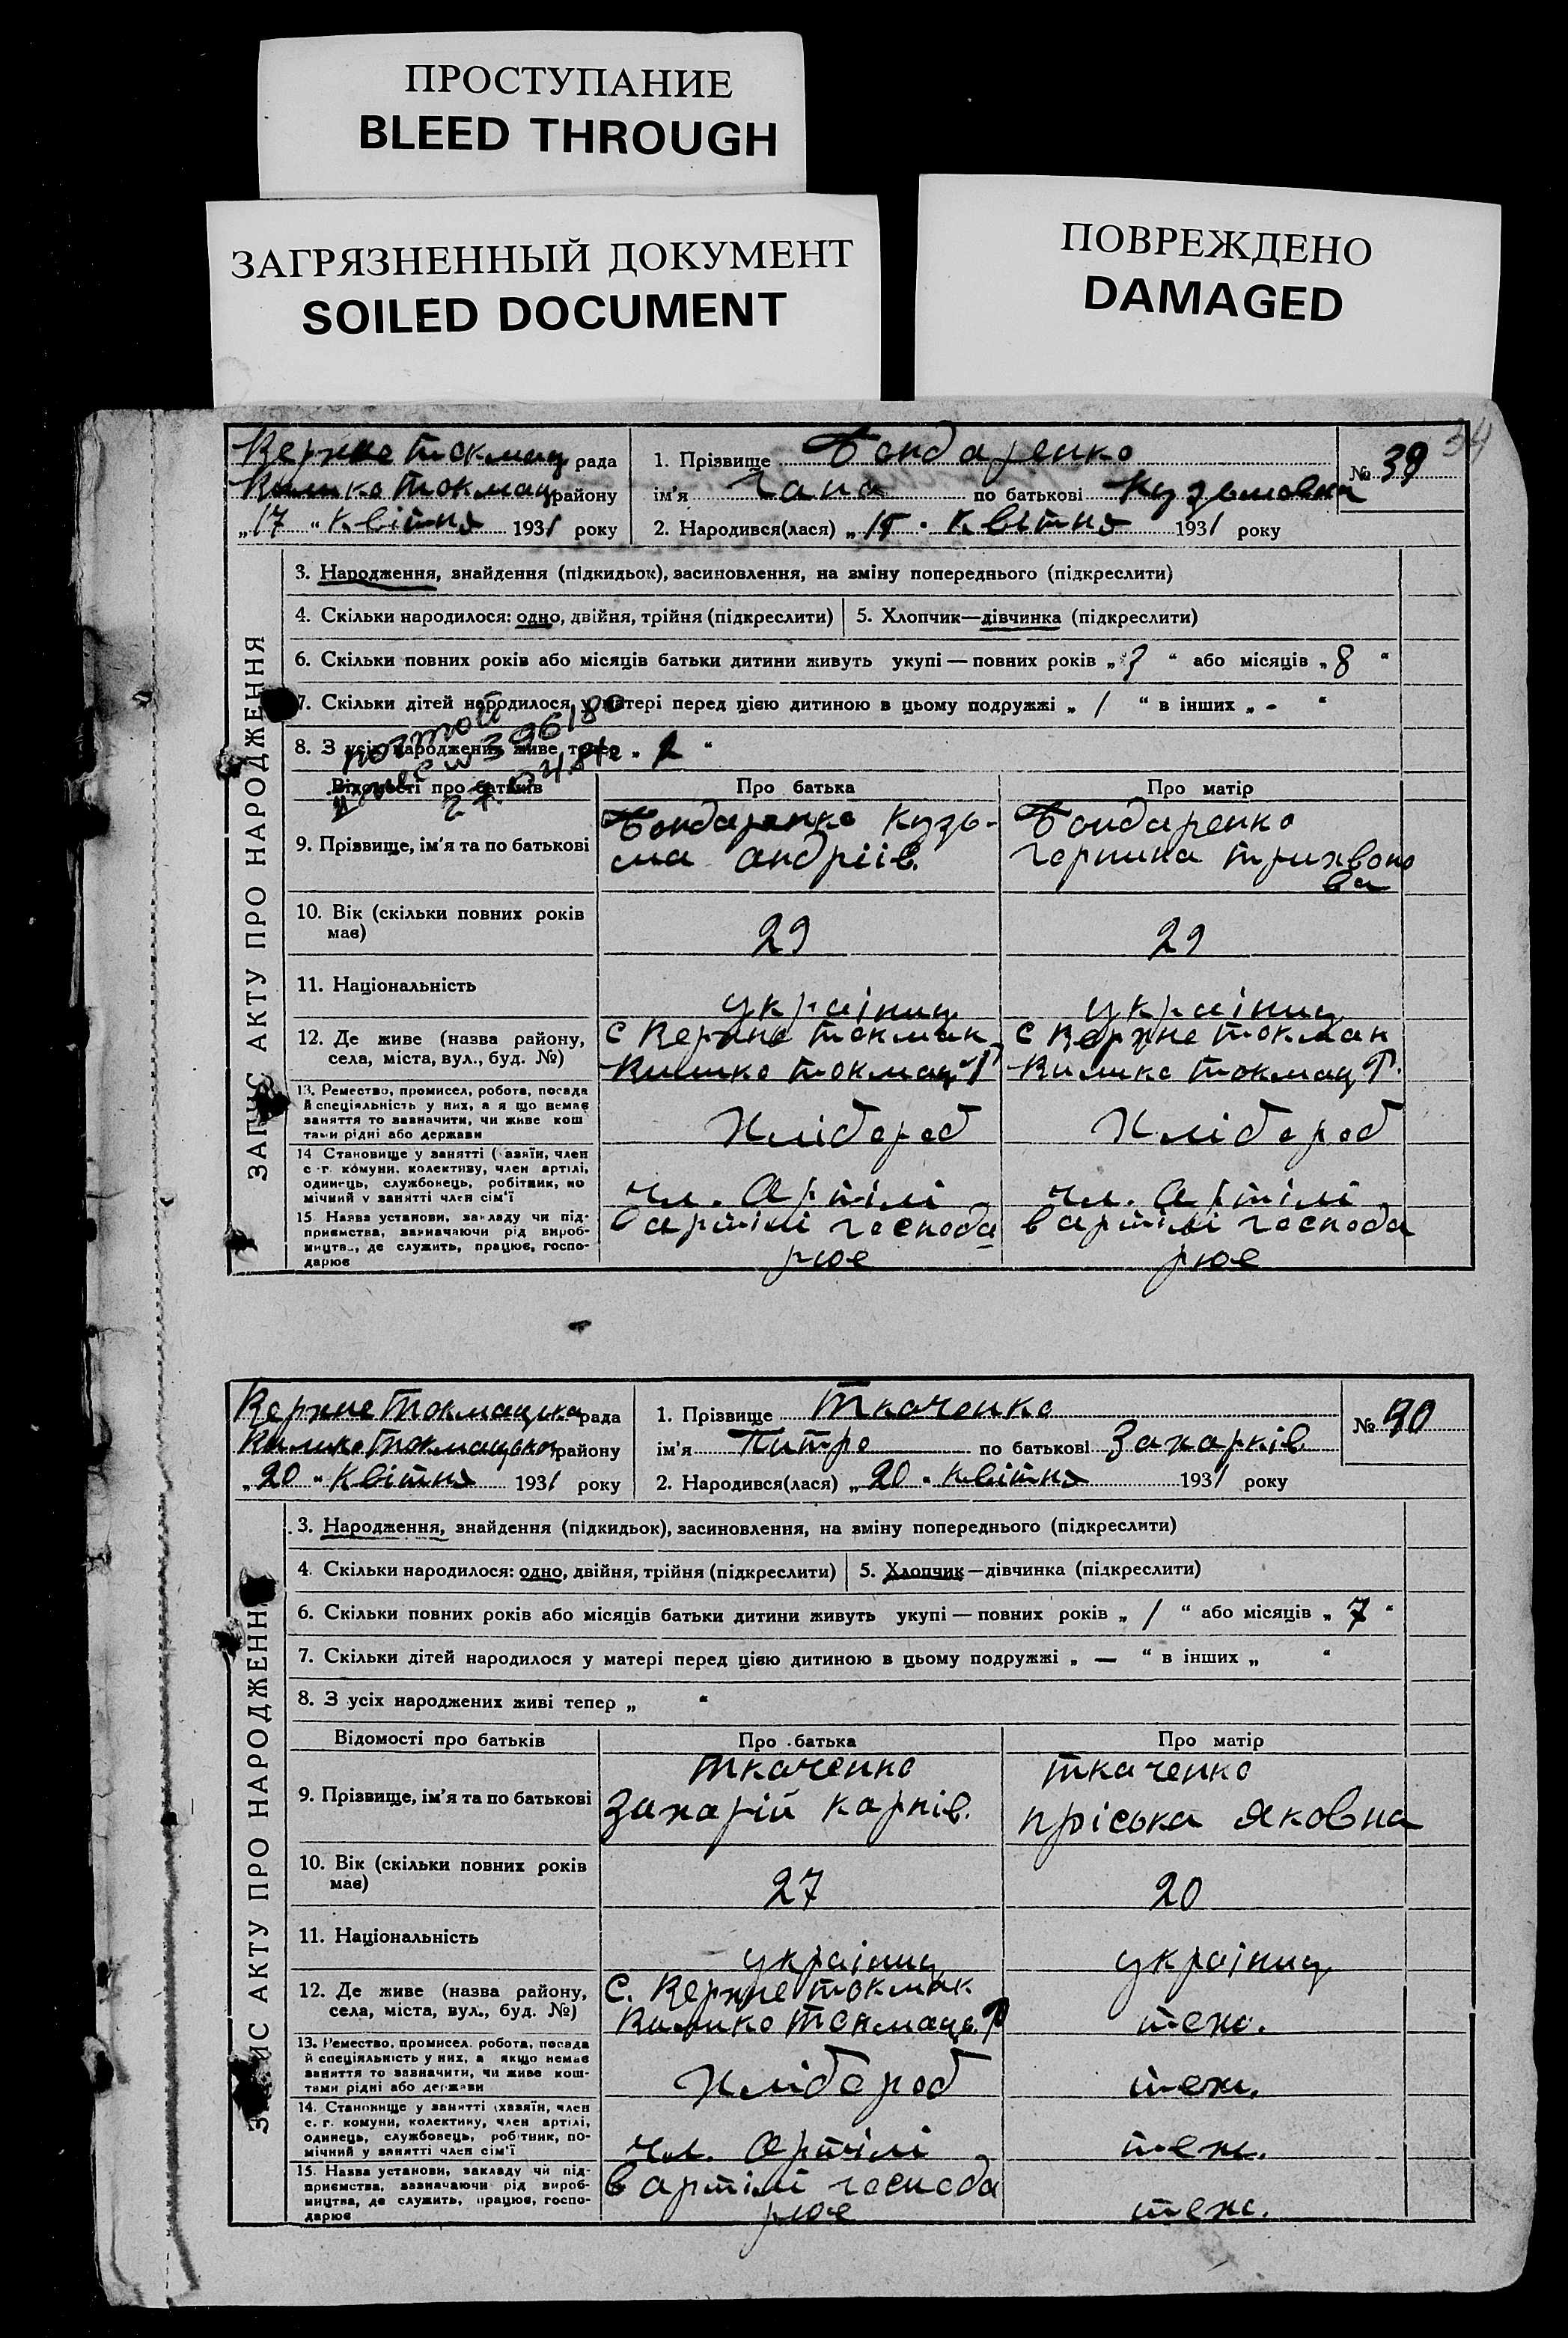 ПРОСТУПАНИЕ
BLEED THROUGH
ЗАГРЯЗНЕННЫЙ ДОКУМЕНТ
SOILED DOCUMENT
ПОВРЕЖДЕНО
DAMAGED
34
Верхне Токмац рада
Вилико Токмац району
„17 “ Квітня 1931 року
1. Прізвище Бондаренко
№ 39
ім'я Гапа по батькові Кузьмовна
2. Народився(лася) „15 “ Квітня 1931 року
ЗАПИС АКТУ ПРО НАРОДЖЕННЯ
3. Народження, знайдення (підкидьок), засиновлення, на зміну попереднього (підкреслити)
4. Скільки народилося: одно, двійня, трійня (підкреслити) 5. Хлопчик—дівчинка (підкреслити)
6. Скільки повних років або місяців батьки дитини живуть укупі — повних років „ 3 “ або місяців „ 8 “
7. Скільки дітей народилося у матері перед цією дитиною в цьому подружжі „ 1 “ в інших „ - “
8. З усіх народжених живе тепер „ 2 “
Відомості про батьків Про батька Про матір
9. Прізвище, ім'я та по батькові
Бондаренко Кузь-
ма андріів.
Бондаренко
горпина трихвоно
ва
10. Вік (скільки повних років
має)
29 29
11. Національність
украінец украінец
12. Де живе (назва району,
села, міста, вул., буд. №)
с Верхне токмак
Вилико токмац Р
с Верхне токмак
Вилико токмац Р.
13. Ремество, промисел, робота, посада
й спеціяльність у них, а я що немає
заняття то зазначити, чи живе кош
тами рідні або держави
Хлібороб Хлібороб
14 Становище у занятті (хазяїн, член
с.-г. комуни, колективу, член артілі,
одинець, службовець, робітник, по
мічний у занятті член сім'ї
чл. Артілі чл. Артілі
15 Назва установи, закладу чи під-
приємства, зазначаючи рід вироб-
ництва, де служить, працює, госпо-
дарює
в артілі господа
рює
в артілі господа
рює
Верхне Токмацка рада
Вилико Токмацької району
„20 “ Квітня 1931 року
1. Прізвище Ткаченко
№ 40
ім'я Питро по батькові Захарків
2. Народився(лася) „20 “ Квітня 1931 року
ЗАПИС АКТУ ПРО НАРОДЖЕННЯ
3. Народження, знайдення (підкидьок), засиновлення, на зміну попереднього (підкреслити)
4. Скільки народилося: одно, двійня, трійня (підкреслити) 5. Хлопчик—дівчинка (підкреслити)
6. Скільки повних років або місяців батьки дитини живуть укупі — повних років „ 1 “ або місяців „ 7 “
7. Скільки дітей народилося у матері перед цією дитиною в цьому подружжі „ — “ в інших „ “
8. З усіх народжених живі тепер „ “
Відомості про батьків Про батька Про матір
9. Прізвище, ім'я та по батькові
Ткаченко
Захарій карпів.
Ткаченко
пріська Яковна
10. Вік (скільки повних років
має)
27 20
11. Національність
украінец украінец
12. Де живе (назва району,
села, міста, вул., буд. №)
С. Верхне токмак
Вилико Токмацьк. Р
теж.
13. Ремество, промисел, робота, посада
й спеціяльність у них, а якщо немає
заняття то зазначити, чи живе кош-
тами рідні або держави
Хлібороб теж.
14. Становище у занятті (хазяїн, член
с. г. комуни, колективу, член артілі,
одинець, службовець, робітник, по-
мічний у занятті член сім'ї
чл. Артілі теж.
15. Назва установи, закладу чи під-
приємства, зазначаючи рід вироб-
ництва, де служить, працює, госпо-
дарює
в артілі господа
рює
теж.